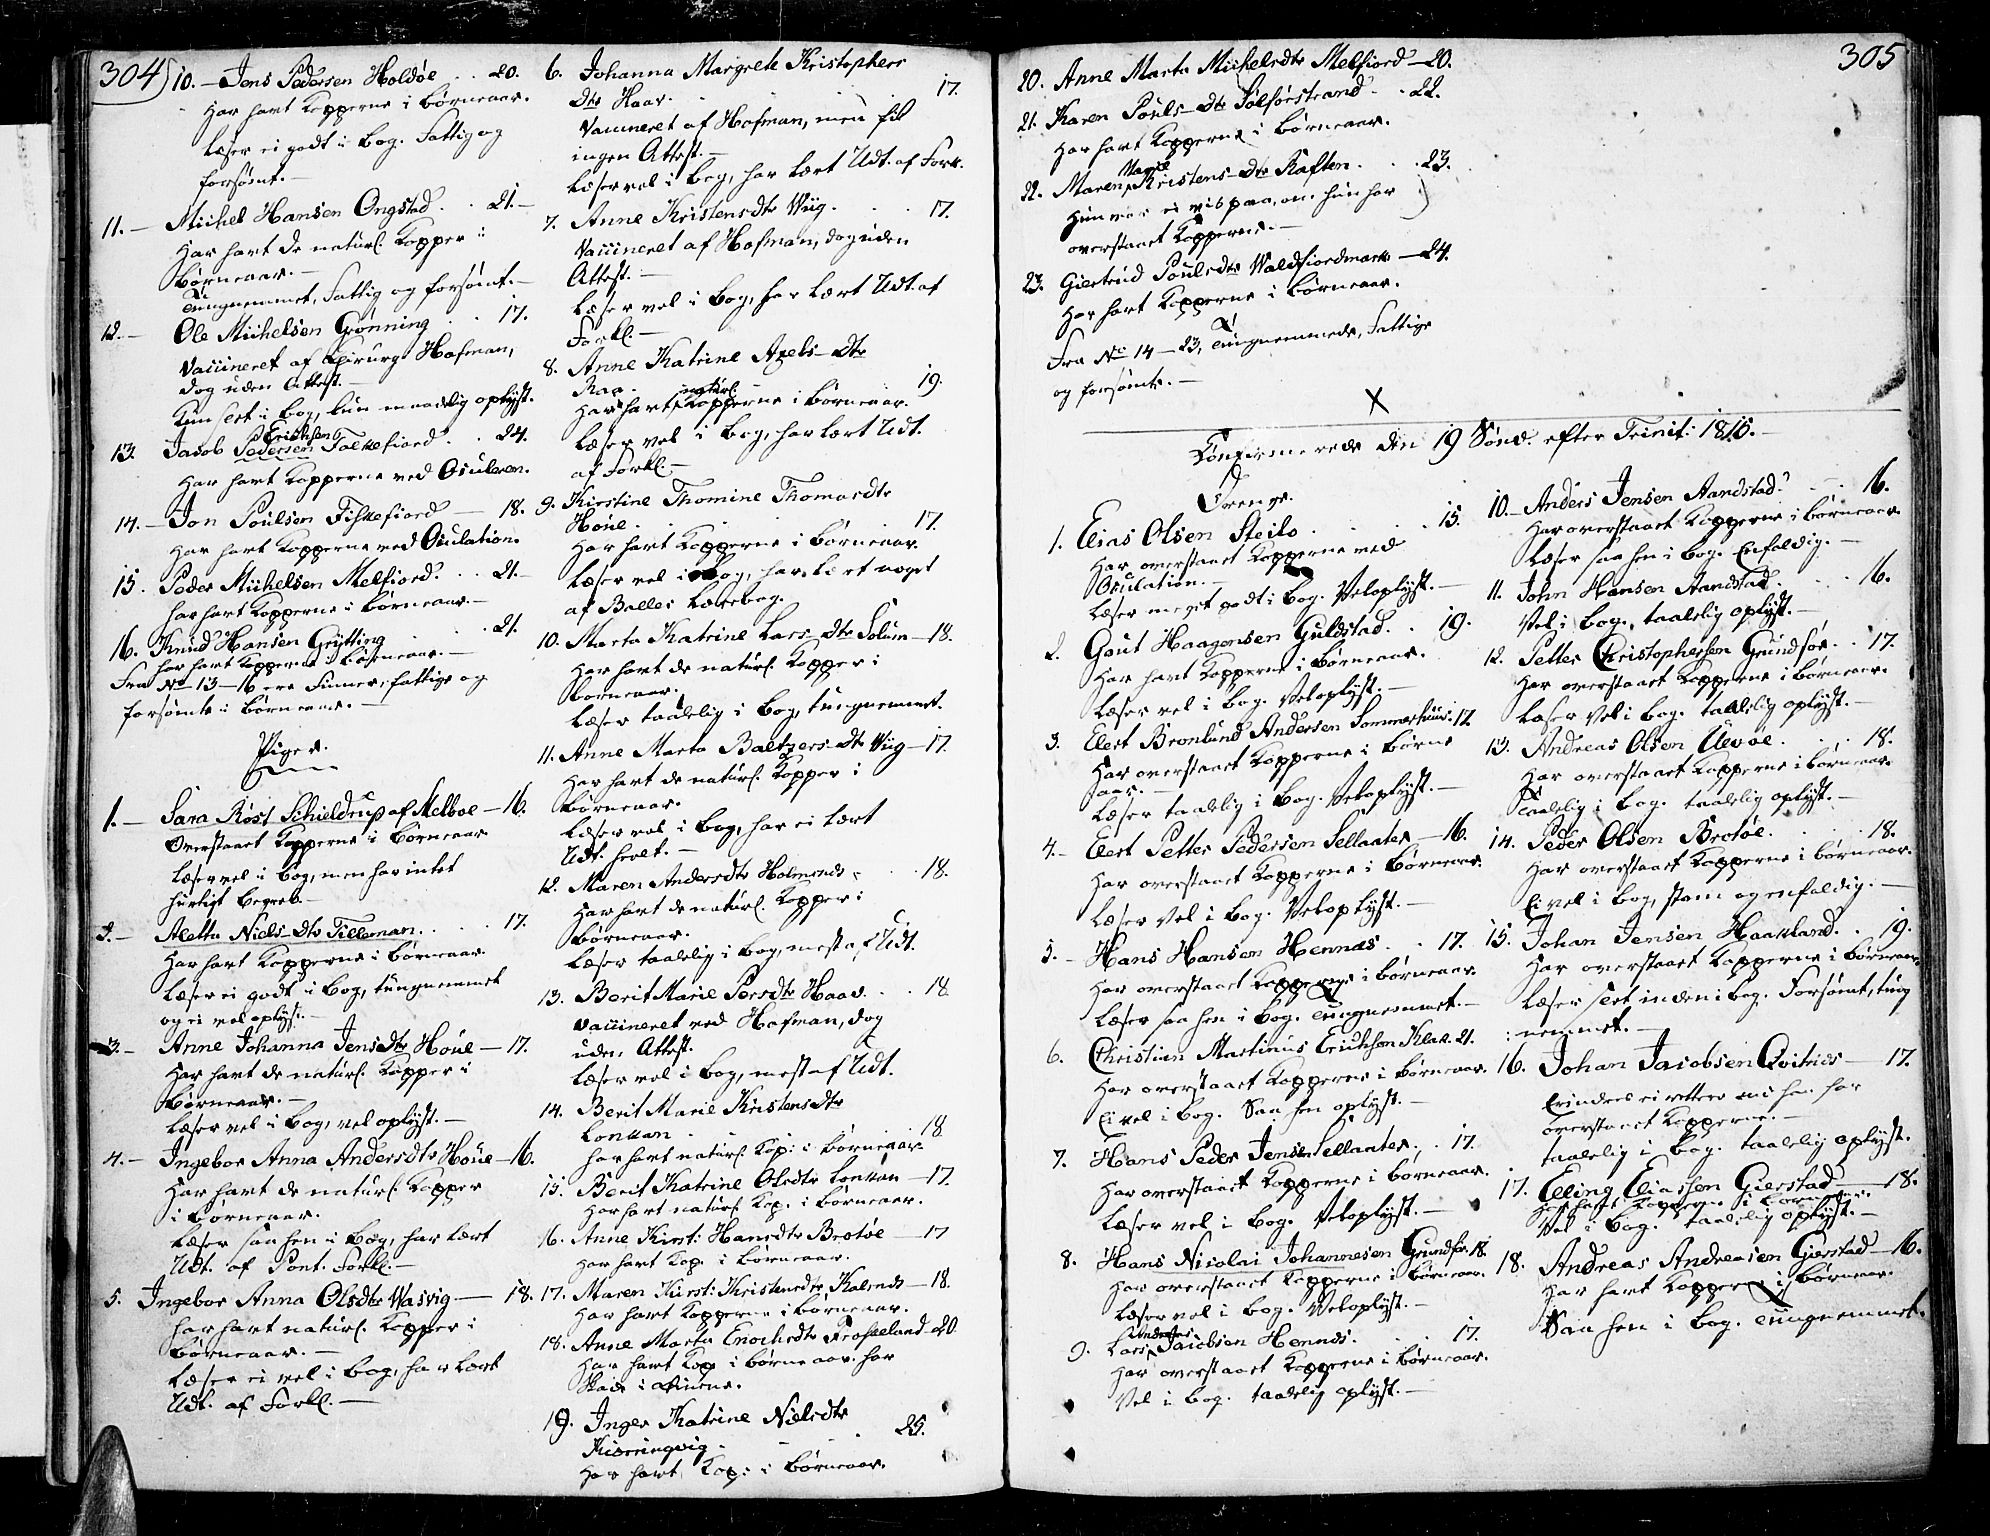 304
10. – Jens Pedersen Holdöe . . 20.
Har havt Kopperne i Börneaar.
Læser ei godt i Bog. Fattig og
forsömt. –
11. – Michel Hansen Ongstad . . 21. –
Har havt de naturl. Kopper i
Börneaar. –
Tungnemmet, Fattig og forsömt. –
12. – Ole Michelsen Grønning . . 17.
Vaccineret af Chirurg Hofman,
dog uden Attest. –
Kun slet i Bog, kun maadelig oplyst.
13. Jacob Pedersen Erichsen Falkefiord . . 24.
Har havt Kopperne ved Oculeren.
14. – Jon Poulsen Fiskefiord – 18.
Har havt Kopperne ved Oculation.
15. Peder Michelsen Melfiord . . 21. –
Har havt Kopperne i Börneaar. –
16. Knud Hansen Grytting . . 21.
Har havt Kopperne i Börneaar. –
Fra No 13 – 16 ere Finner, fattige og
forsömte i Börneaar. –
Piger.
1. – Sara Röst Schieldrup af Melboe – 16.
Overstaaet Kopperne i Börneaar
Læser vel i Bog, men har intet
hurtigt Begreb –
2. – Aletta Niels-Dtr Tilleman . . 17.
Har havt Kopperne i Börneaar.
Læser ei godt i Bog, tungnemmet
og ei vel oplyst. –
3. – Anne Johanna Jensdtr Houe – 17.
Har havt de naturl. Kopper i
Börneaar. –
Læser vel i Bog, vel oplyst. –
4. – Ingebor Anna Andersdtr Houe – 16.
Har havt de naturl. Kopper
i Börneaar.
Læser saa hen i Bog, har lært
Udt. af Pont. Forkl. –
5. Ingebor Anna Olsdtr Vasvig – 18.
Har havt naturl. Kopper i
Börneaar. –
Læser ei vel i Bog, har lært
Udt. af Forkl. –
6. Johanna Margrete Kristophers
Dtr Haav . 17.
Vaccineret af Hofman, men fik
ingen Attest. –
Læser vel i Bog, har lært Udt. af Fork.
7. Anne Kristensdtr Viig . . . 17.
Vaccineret af Hofman, dog uden
Attest. –
Læser vel i Bog, har lært Udt. af
Forkl. –
8. Anne Katrine Axels-Dtr
Raa . 19.
Har havt naturl. Kopperne i Börneaar.
Læser vel i Bog, har lært Udt.
af Forkl. –
9. Kirstine Thomine Thomasdtr
Houe . 17.
Har havt Kopperne i Börneaar.
Læser vel i Bog, har lært noget
af Balles Lærebog.
10. Marta Katrine Lars-Dtr Solum – 18.
Har havt de naturl. Kopper i
Börneaar.
Læser taalelig i Bog, tungnemmet.
11. Anne Marta Baltzers-Dtr Viig – 17.
Har havt de naturl. Kopper i
Börneaar.
Læser vel i Bog, har ei lært
Udt. heelt. –
12. Maren Andersdtr Holmsnes . . 18.
Har havt de naturl. Kopper i
Börneaar.
Læser taalelig i Bog, mest af Udt.
13. Berit Marie Persdtr Haav . . 18
Vaccineret ved Hofman, dog
uden Attest.
Læser vel i Bog, mest af Udt.
14. Berit Marie Kristensdtr
Lonkan . . . 18
Har havt naturl. Kop: i Börneaar.
15. Berit Katrine Olsdtr Lonkan – 17.
Har havt naturl. Kop. i Börneaar.
16. Anne Kirst: Hansdtr Brotöe – 17
Har havt Kop. i Börneaar.
17. Maren Kirst: Kristensdtr Kalsnes – 18.
Har havt Kopperne i Börneaar.
18. Anne Marta Enochsdtr Froskeland 20
Har havt Kop i Börneaar. har
Skade i Öinene.
19. Inger Katrine Nielsdtr
Kierringvig . – – . 25.
Har havt Kop: i Börneaar.
305
20. Anne Marta Michelsdtr Melfiord – 20.
21. Karen Pouls-Dtr Sölförstrand . . 22.
Har havt Kopperne i Börneaar.
22. Maren Marie Kristens-Dtr Raften . . . 23.
Hun var ei vis paa, om hun har
overstaaet Kopperne. –
23. Giertrud Poulsdtr Waldfiordmark – 24.
Har havt Kopperne i Börneaar.
Fra No 14 – 23, Tungnemmede, Fattige
og forsömte. –
X
Confirmerede den 19 Sönd. efter Trinit: 1815. –
Drenge.
1. Elias Olsen Steilo . . . . 15.
Har overstaaet Kopperne ved
Oculation. –
Læser meget godt i Bog. Veloplyst. –
2. Gout Haagonsen Guldstad . . 19.
Har havt Kopperne i Börneaar.
Læser vel i Bog. Veloplyst. –
3. Elert Bronlund Andersen Sommerhuus . 17.
Har overstaaet Kopperne i Börne
aar. –
Læser taalelig i Bog. Veloplyst. –
4. – Elert Petter Pedersen Sellaater – 16.
Har overstaaet Kopperne i Börneaar.
Læser Vel i Bog. Veloplyst. –
5. – Hans Hansen Hennæs . . 17.
Har overstaaet Kopperne i Börneaar.
Læser saa hen i Bog. Tungnemmet. –
6. Christian Martinus Erichsen Klak. 21.
Har overstaaet Kopperne i Börneaar.
Ei vel i Bog. Saa hen oplyst. –
7. Hans Peder Jensen Sellaater . . 17.
Har overstaaet Kopperne i Börneaar.
Læser vel i Bog. Veloplyst. –
8. Hans Nicolai Johannesen Grundför. 18.
Har overstaaet Kopperne i Börneaar.
Læser vel i Bog. Veloplyst. –
9. Lars Andreas Jacobsen Hennes . . . 17.
Har overstaaet Kopperne i Börneaar.
Vel i Bog. taalelig oplyst. –
10. – Anders Jensen Aandstad . . . 16.
Har overstaaet Kopperne i Börneaar.
Læser saa hen i Bog. Enfoldig. –
11. John Hansen Aandstad . . . 16.
Vel i Bog., taalelig oplyst. –
12. Petter Christophersen Grundför . . 17.
Har overstaaet Kopperne i Börneaar.
Læser Vel i Bog. taalelig oplyst. –
13. Andreas Olsen Uevoe . . . 18.
Har overstaaet Kopperne i Börneaar
Taalelig i Bog. taalelig oplyst. –
14. Peder Olsen Brotöe . . . . 18.
Har overstaaet Kopperne i Börneaar.
Ei vel i Bog, stam og enfoldig. –
15. Johan Jensen Haakland . . 19.
Har overstaaet Kopperne i Börneaar
Læser slet inden i Bog. Forsömt, tung
: nemmet. –
16. Johan Jacobsen Qvitnes – 17.
Erindres ei rettere end han har
overstaaet Kopperne. –
taalelig i Bog. taalelig oplyst.
17. Elling Eliassen Gierstad – 18.
Har havt Kopperne i Börneaar.
Vel i Bog. taalelig oplyst. –
18. Andreas Andreasen Gierstad – 16.
Har havt Kopper i Börneaar.
Saa hen i Bog. Tungnemmet.